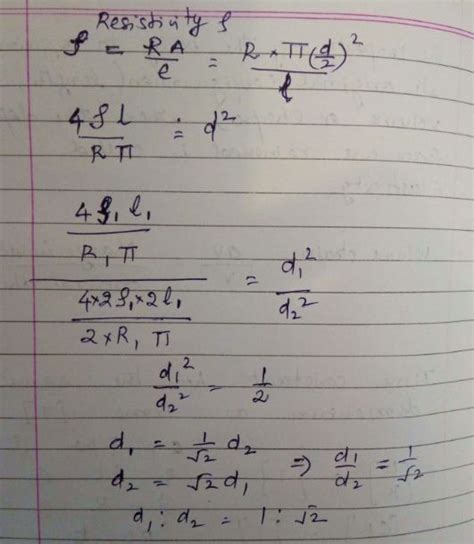 Resistivity ρ
ρ = RA/l = R × π(d/2)²/l
4ρl/Rπ = d²
(4ρ₁l₁/R₁π)/(4×2ρ₁×2l₁/2×R₁π) = d₁²/d₂²
d₁²/d₂² = 1/2
d₁ = 1/√2 d₂
d₂ = √2 d₁ ⇒ d₁/d₂ = 1/√2
d₁ : d₂ = 1 : √2